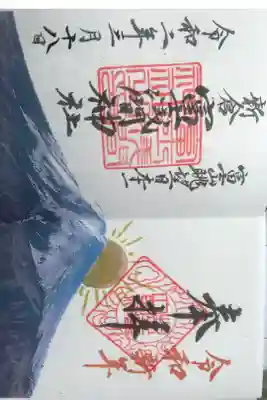 令和新年
奉拝
富士山眺望日本一
新倉富士浅間神社
令和二年三月十八日